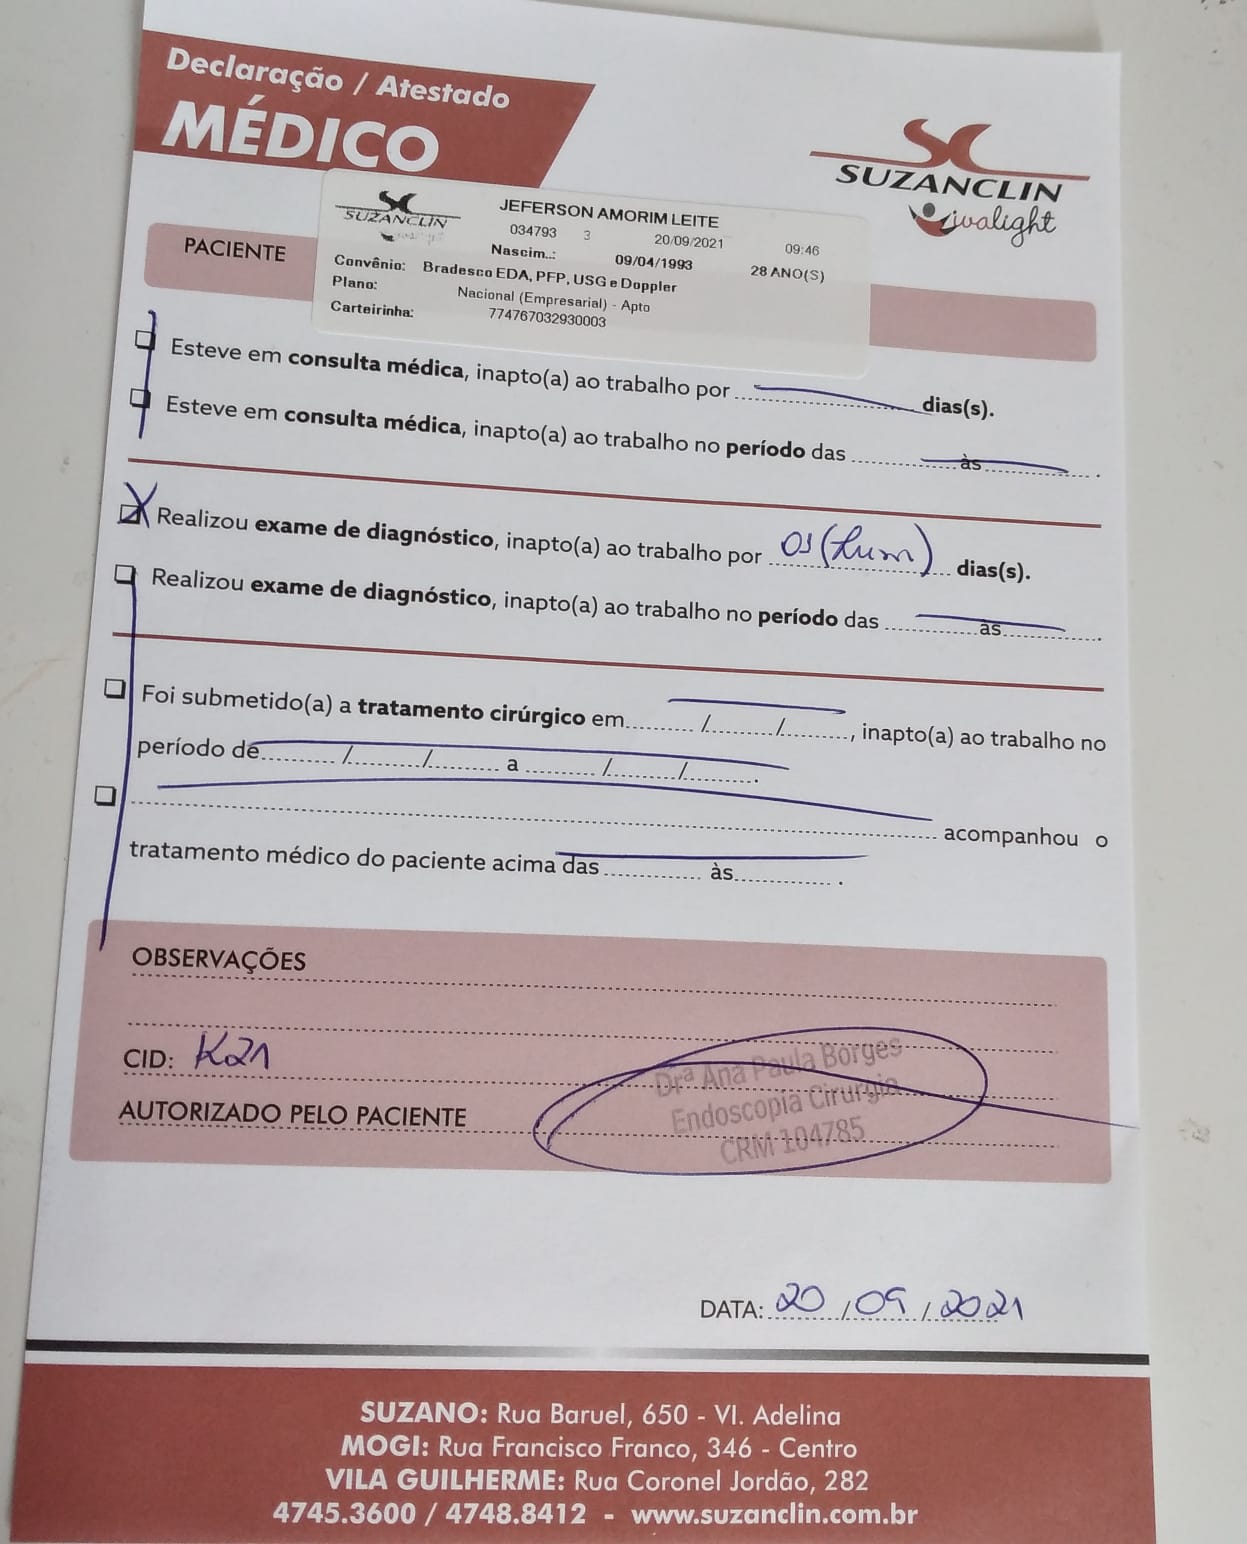 Declaração / Atestado
MÉDICO
SUZANCLIN
vivalight
SUZANCLIN
JEFERSON AMORIM LEITE
034793 3 20/09/2021 09:46
Nascim..: 09/04/1993 28 ANO(S)
Convênio: Bradesco EDA, PFP, USG e Doppler
Plano: Nacional (Empresarial) - Apto
Carteirinha: 774767032930003
PACIENTE
Esteve em consulta médica, inapto(a) ao trabalho por dias(s).
Esteve em consulta médica, inapto(a) ao trabalho no período das às .
X Realizou exame de diagnóstico, inapto(a) ao trabalho por 01 (hum) dias(s).
Realizou exame de diagnóstico, inapto(a) ao trabalho no período das às .
Foi submetido(a) a tratamento cirúrgico em / / , inapto(a) ao trabalho no
período de / / a / / .
acompanhou o
tratamento médico do paciente acima das às .
OBSERVAÇÕES
CID: K21
AUTORIZADO PELO PACIENTE
Drª Ana Paula Borges
Endoscopia Cirurgia
CRM 104785
DATA: 20 / 09 / 2021
SUZANO: Rua Baruel, 650 - Vl. Adelina
MOGI: Rua Francisco Franco, 346 - Centro
VILA GUILHERME: Rua Coronel Jordão, 282
4745.3600 / 4748.8412 - www.suzanclin.com.br